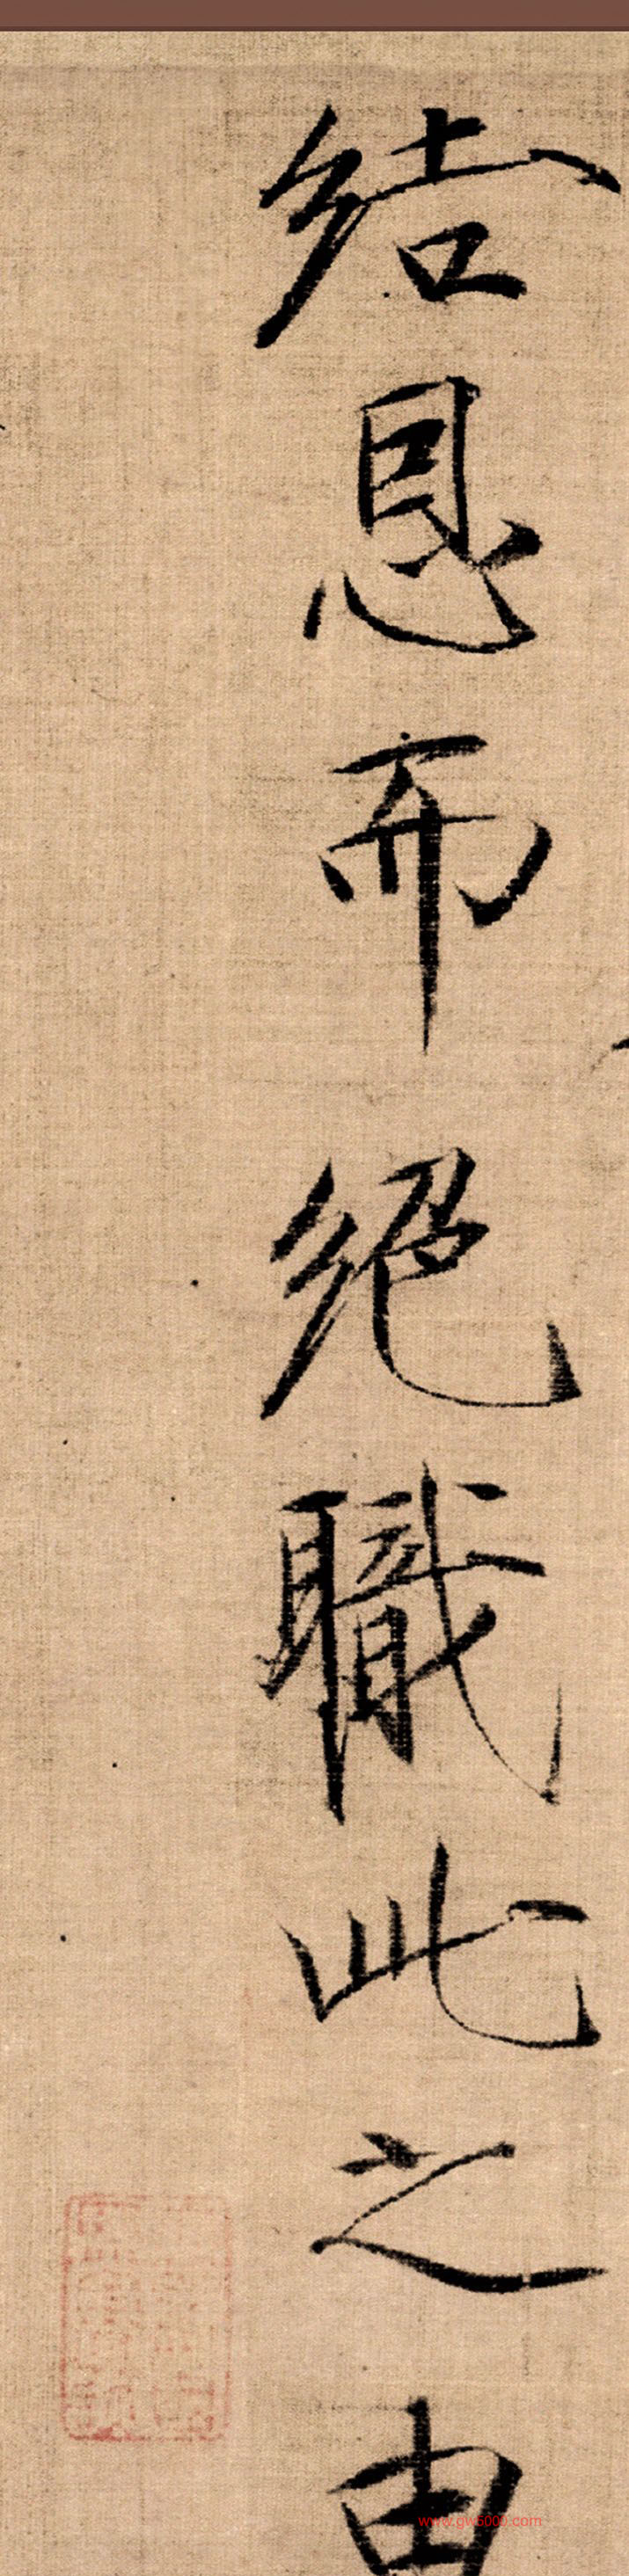 結恩而絕職此之由
www.gw5000.com